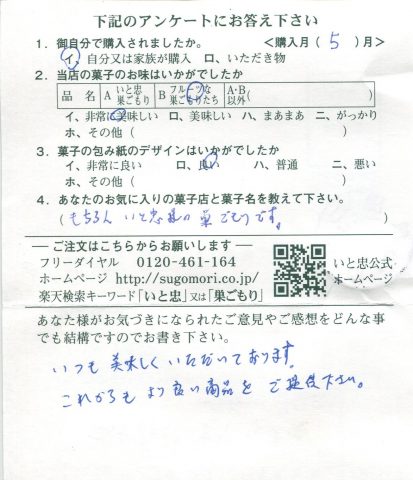 下記のアンケートにお答え下さい
1. 御自分で購入されましたか。 <購入月( 5 )月>
イ、自分又は家族が購入 ロ、いただき物
2. 当店の菓子のお味はいかがでしたか
品名 A いと忠巣ごもり B フルーツな巣ごもりたち A・B以外( )
イ、非常に美味しい ロ、美味しい ハ、まあまあ ニ、がっかり
ホ、その他( )
3. 菓子の包み紙のデザインはいかがでしたか
イ、非常に良い ロ、良い ハ、普通 ニ、悪い
ホ、その他( )
4. あなたのお気に入りの菓子店と菓子名を教えて下さい。
(もちろん いと忠様の巣ごもりです。 )
ご注文はこちらからお願いします
フリーダイヤル 0120-461-164
ホームページ http://sugomori.co.jp/
楽天検索キーワード「いと忠」又は「巣ごもり」
いと忠公式
ホームページ
あなた様がお気づきになられたご意見やご感想をどんな事
でも結構ですのでお書き下さい。
いつも美味しくいただいております。
これからもより良い商品をご提供下さい。